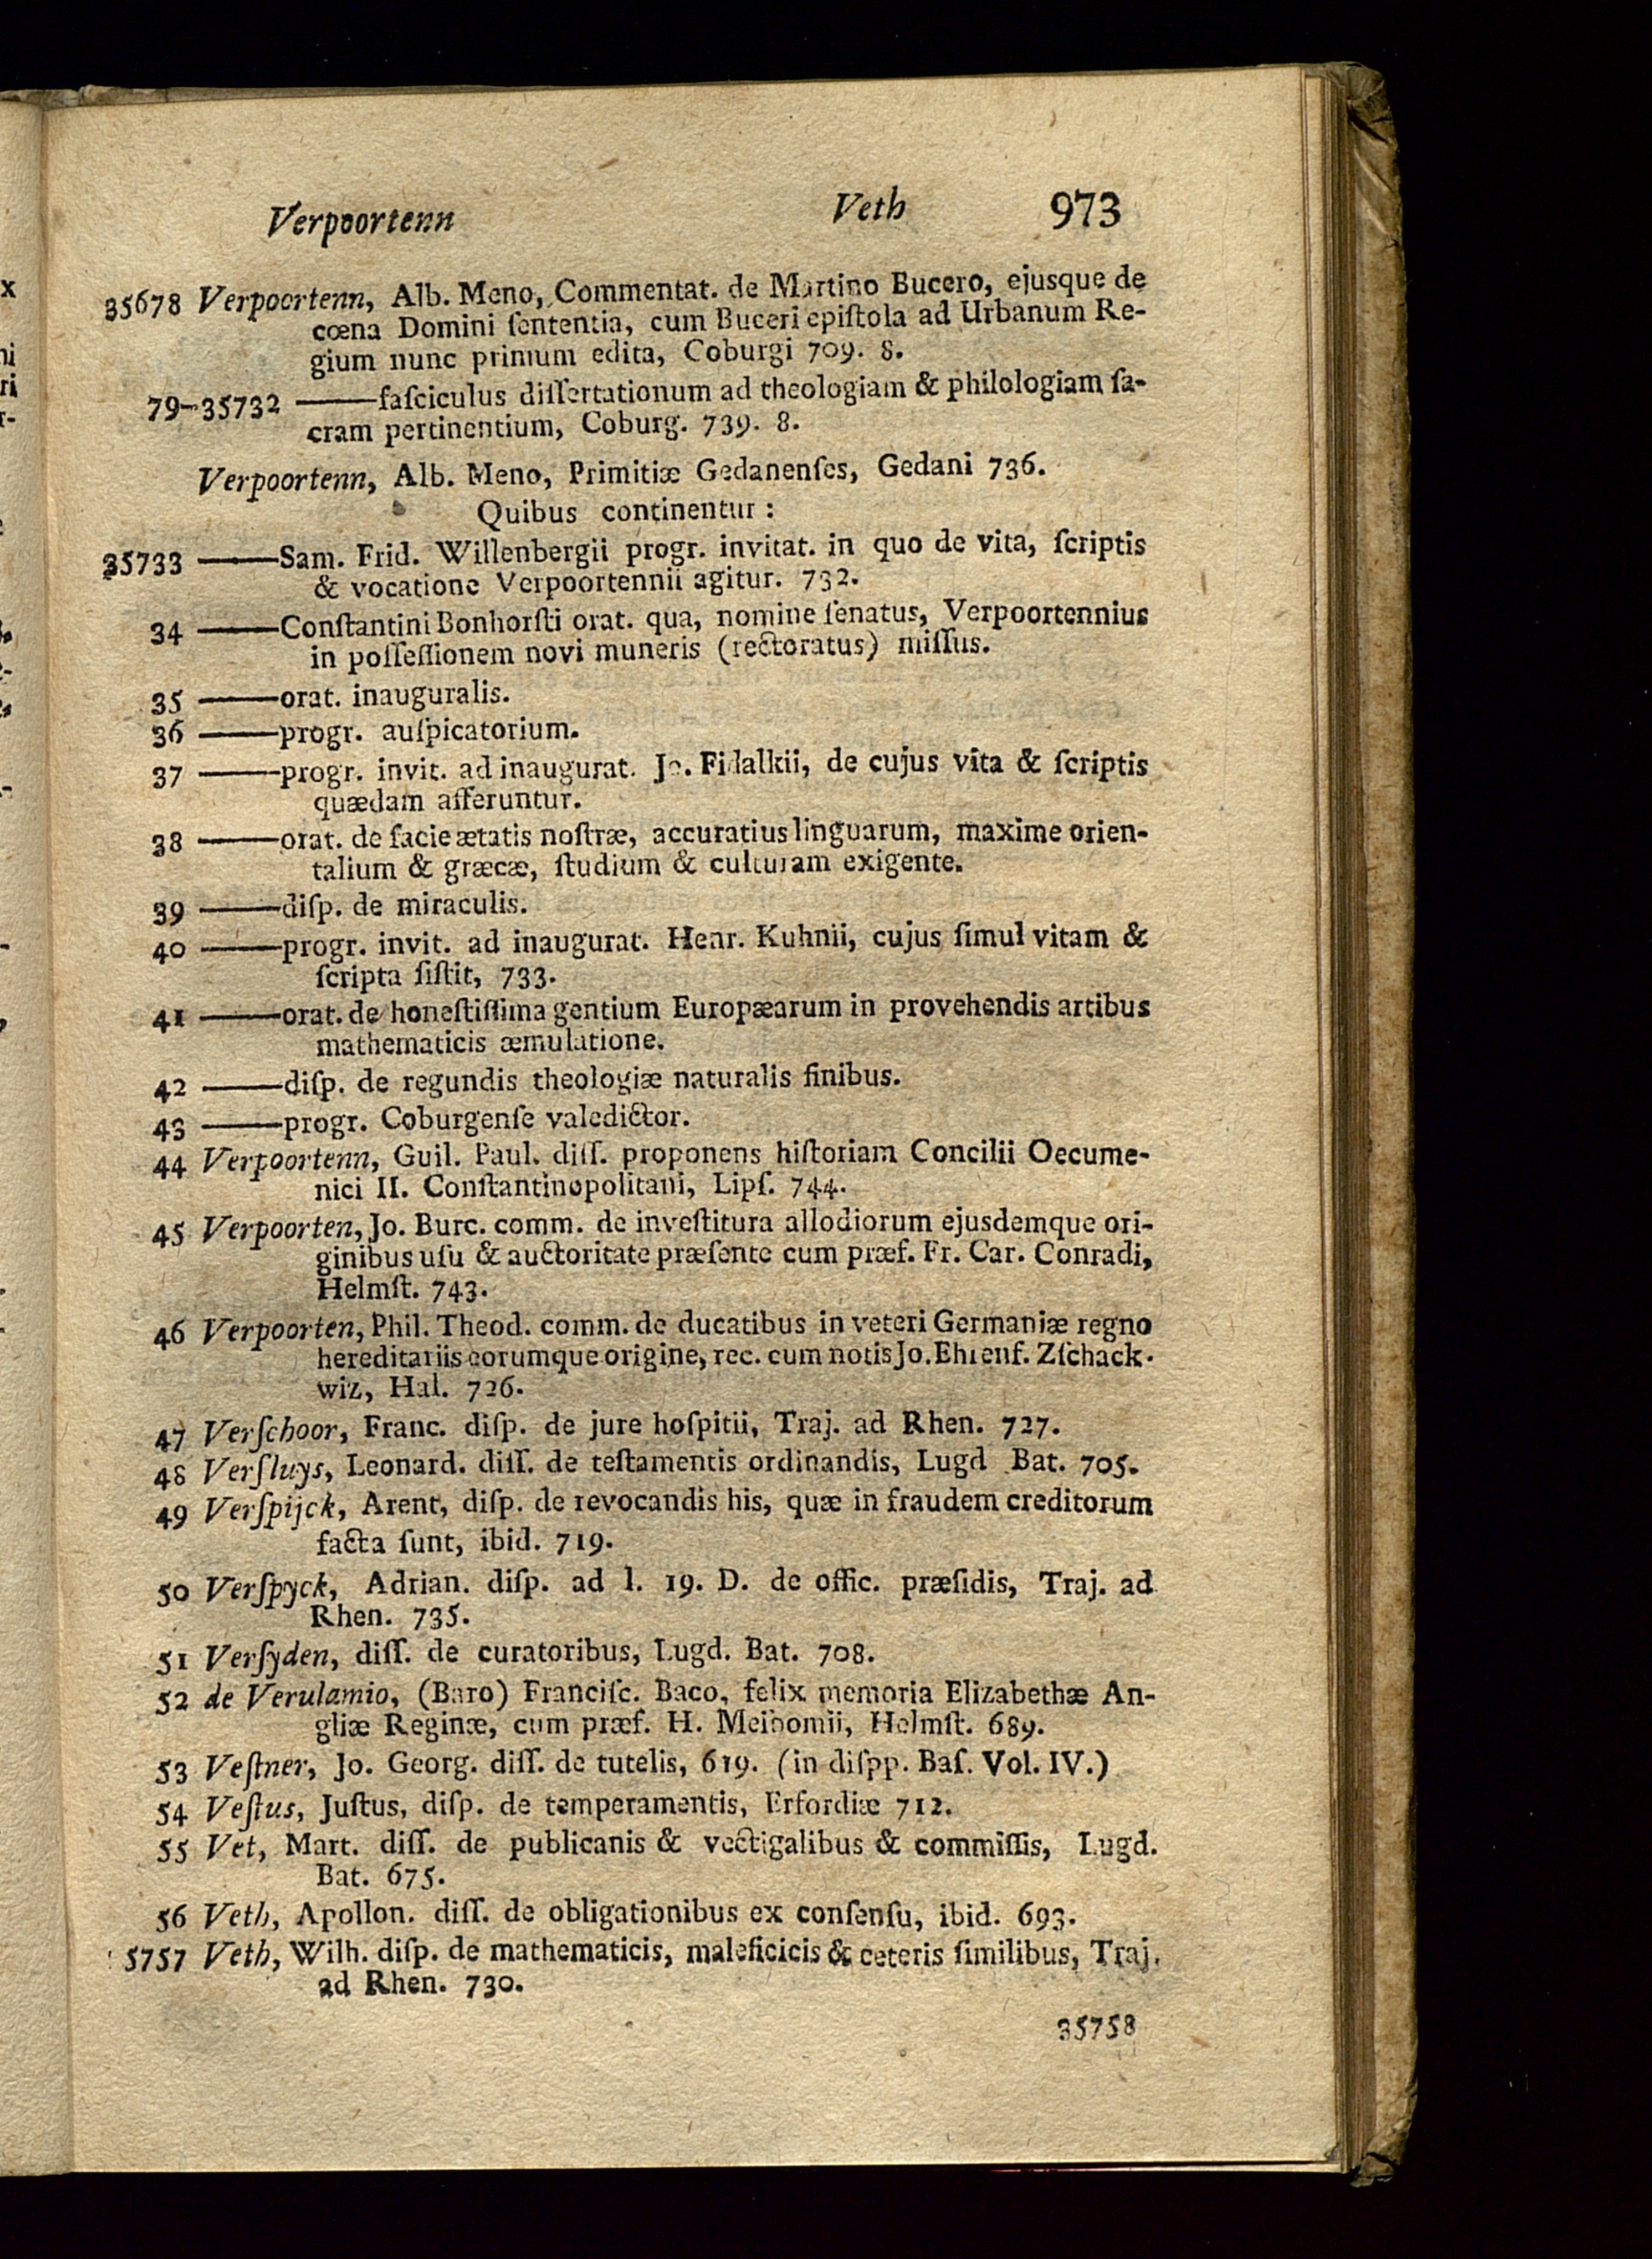 Verpoortenn Veth 973
35678 Verpoortenn, Alb. Meno, Commentat. de Martino Bucero, ejusque de
cœna Domini ſententia, cum Buceri epiſtola ad Urbanum Re-
gium nunc primum edita, Coburgi 709. 8.
79-35732 ——faſciculus diſſertationum ad theologiam & philologiam ſa-
cram pertinentium, Coburg. 739. 8.
Verpoortenn, Alb. Meno, Primitiæ Gedanenſes, Gedani 736.
Quibus continentur:
35733 ——Sam. Frid. Willenbergii progr. invitat. in quo de vita, ſcriptis
& vocatione Verpoortennii agitur. 732.
34 ——Conſtantini Bonhorſti orat. qua, nomine ſenatus, Verpoortennius
in poſſeſſionem novi muneris (rectoratus) miſſus.
35 ——orat. inauguralis.
36 ——progr. auſpicatorium.
37 ——progr. invit. ad inaugurat. Jo. Fidalkii, de cujus vita & ſcriptis
quædam afferuntur.
38 ——orat. de facie ætatis noſtræ, accuratius linguarum, maxime orien-
talium & græcæ, ſtudium & culturam exigente.
39 ——diſp. de miraculis.
40 ——progr. invit. ad inaugurat. Henr. Kuhnii, cujus ſimul vitam &
ſcripta ſiſtit, 733.
41 ——orat. de honeſtiſſima gentium Europæarum in provehendis artibus
mathematicis æmulatione.
42 ——diſp. de regundis theologiæ naturalis finibus.
43 ——progr. Coburgenſe valedictor.
44 Verpoortenn, Guil. Paul. diſſ. proponens hiſtoriam Concilii Oecume-
nici II. Conſtantinopolitani, Lipſ. 744.
45 Verpoorten, Jo. Burc. comm. de inveſtitura allodiorum ejusdemque ori-
ginibus uſu & auctoritate præſente cum præf. Fr. Car. Conradi,
Helmſt. 743.
46 Verpoorten, Phil. Theod. comm. de ducatibus in veteri Germaniæ regno
hereditariis eorumque origine, rec. cum notis Jo. Ehrenf. Zſchack-
wiz, Hal. 726.
47 Verſchoor, Franc. diſp. de jure hoſpitii, Traj. ad Rhen. 727.
48 Verſluys, Leonard. diſſ. de teſtamentis ordinandis, Lugd Bat. 705.
49 Verſpijck, Arent, diſp. de revocandis his, quæ in fraudem creditorum
facta ſunt, ibid. 719.
50 Verſpyck, Adrian. diſp. ad l. 19. D. de offic. præſidis, Traj. ad
Rhen. 735.
51 Verſyden, diſſ. de curatoribus, Lugd. Bat. 708.
52 de Verulamio, (Baro) Franciſc. Baco, felix memoria Elizabethæ An-
gliæ Reginæ, cum præf. H. Meibomii, Helmſt. 689.
53 Veſtner, Jo. Georg. diſſ. de tutelis, 619. (in diſpp. Baſ. Vol. IV.)
54 Veſtus, Juſtus, diſp. de temperamentis, Erfordiæ 712.
55 Vet, Mart. diſſ. de publicanis & vectigalibus & commiſſis, Lugd.
Bat. 675.
56 Veth, Apollon. diſſ. de obligationibus ex conſenſu, ibid. 693.
5757 Veth, Wilh. diſp. de mathematicis, maleficicis & ceteris ſimilibus, Traj.
ad Rhen. 730.
35758